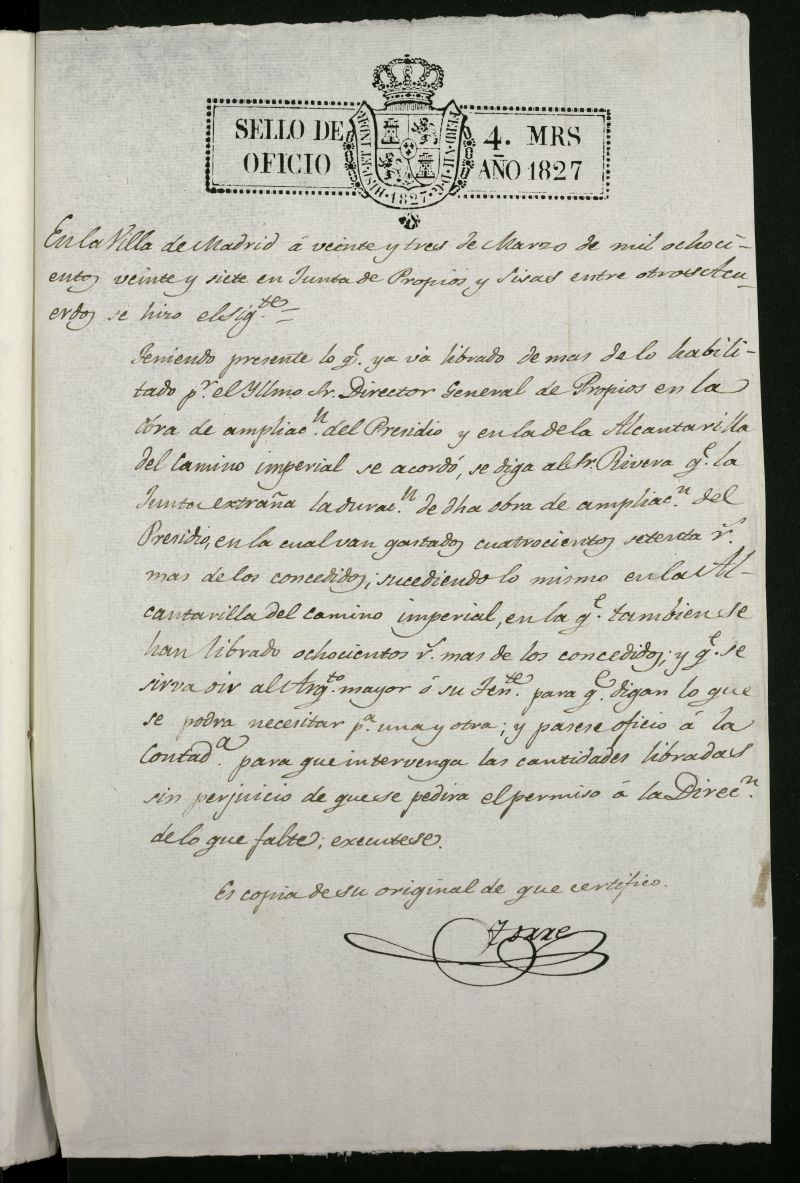 SELLO DE OFICIO
4. MRS AÑO 1827
HISP. ET IND. R. FERD. VII. D. G. 1827
En la Villa de Madrid á veinte y tres de Marzo de mil ochoci-
entos veinte y siete en Junta de Propios y Sisas entre otros Acu-
erdos se hizo el sigte. =
Teniendo presente lo q.e ya vá librado demas de lo habili-
tado p.r el Yllmo Sr. Director General de Propios en la
obra de ampliac.n del Presidio y en la de la Alcantarilla
del Camino imperial se acordó, se diga al Sr. Rivera q.e la
Junta extraña la durac.n de dha obra de ampliac.n del
Presidio, en la cual van gastados cuatrocientos setenta r.s
mas de los concedidos; sucediendo lo mismo en la Al-
cantarilla del Camino imperial, en la q.e tambien se
han librado ochocientos r.s mas de los concedidos; y q.e se
sirva oir al Arq.to mayor ó su Ten.te para q.e digan lo que
se podra necesitar p.a una y otra; y pasese oficio á la
Contad.a para que intervenga las cantidades libradas
sin perjuicio de que se pedira el permiso á la Direc.n
de lo que falte; executese.
Es copia de su original de que certifico.